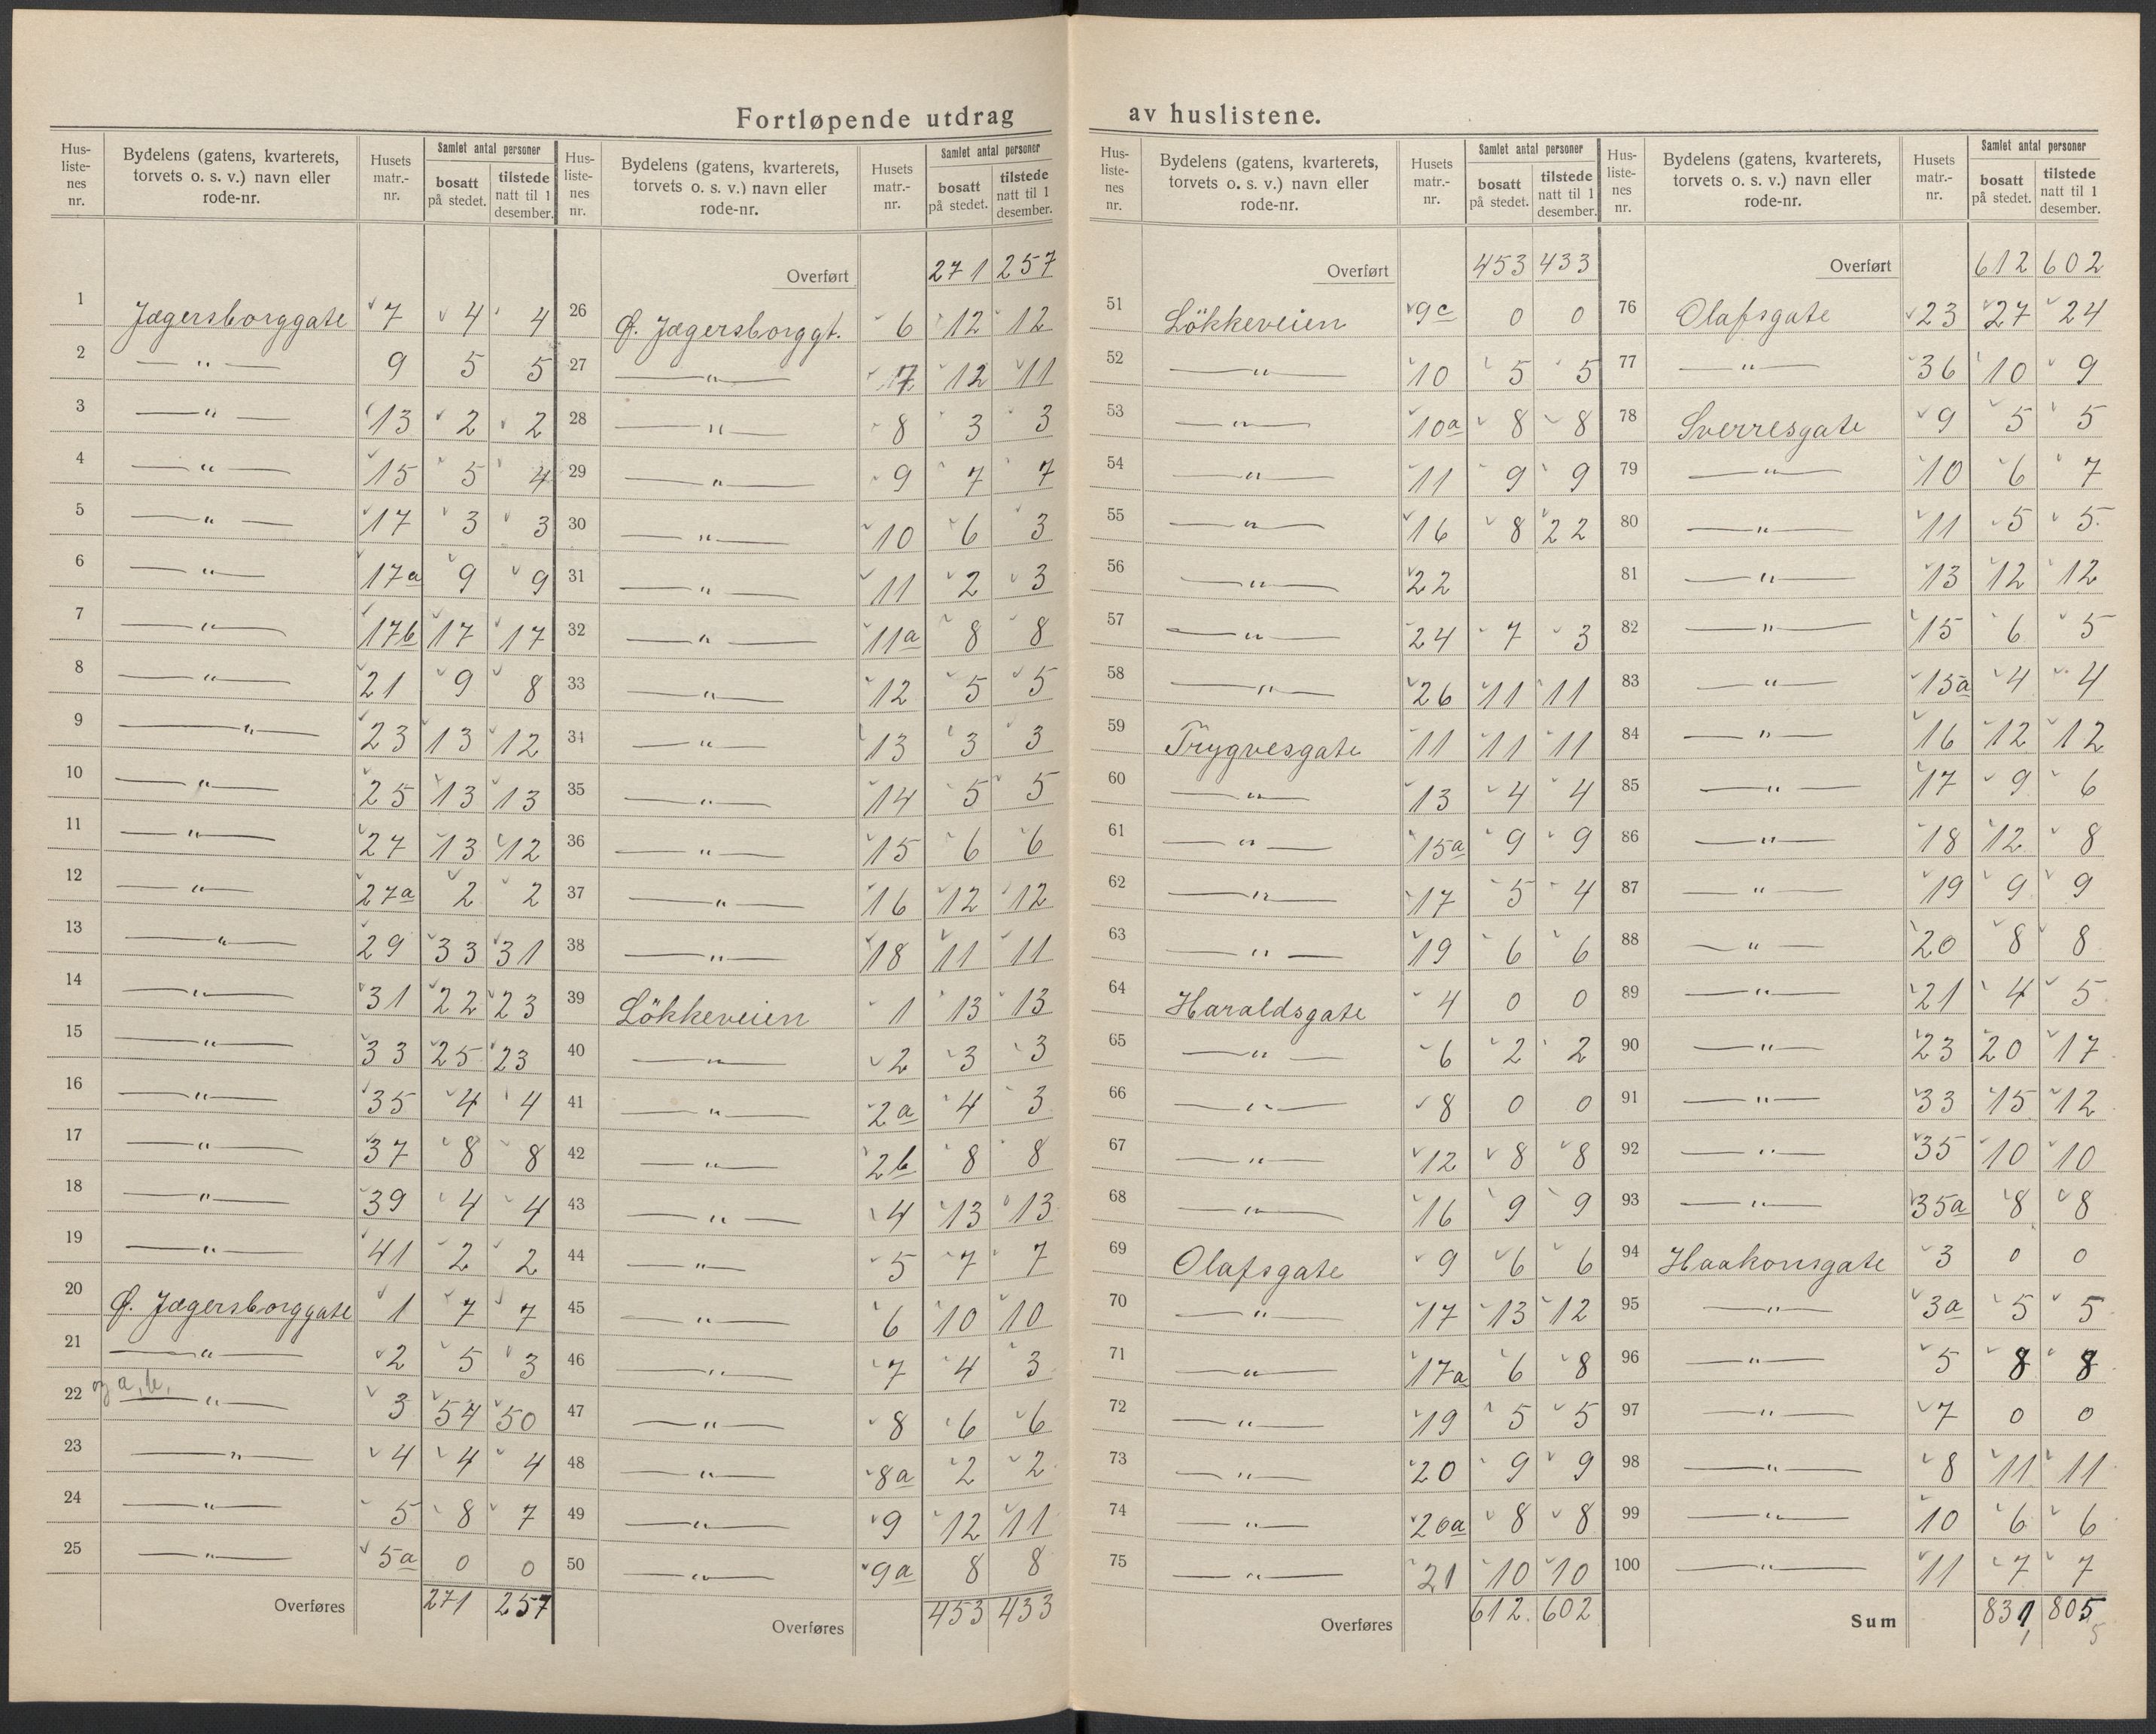 Fortløpende utdrag av huslistene.
Hus-liste-nes nr. | Bydelens (gatens, kvarterets, torvets o. s. v.) navn eller rode-nr. | Husets matr.-nr. | Samlet antal personer bosatt på stedet. | tilstede natt til 1 desember.
1 Jægersborggate 7 4 4
2 — " — 9 5 5
3 — " — 13 2 2
4 — " — 15 5 4
5 — " — 17 3 3
6 — " — 17a 9 9
7 — " — 17b 17 17
8 — " — 21 9 8
9 — " — 23 13 12
10 — " — 25 13 13
11 — " — 27 13 12
12 — " — 27a 2 2
13 — " — 29 33 31
14 — " — 31 22 23
15 — " — 33 25 23
16 — " — 35 4 4
17 — " — 37 8 8
18 — " — 39 4 4
19 — " — 41 2 2
20 Ø. Jægersborggate 1 7 7
21 — " — 2 5 3
22 og a, b, — " — 3 54 50
23 — " — 4 4 4
24 — " — 5 8 7
25 — " — 5a 0 0
Overføres 271 257
Hus-liste-nes nr. | Bydelens (gatens, kvarterets, torvets o. s. v.) navn eller rode-nr. | Husets matr.-nr. | Samlet antal personer bosatt på stedet. | tilstede natt til 1 desember.
Overført 271 257
26 Ø. Jægersborggt. 6 12 12
27 — " — 7 12 11
28 — " — 8 3 3
29 — " — 9 7 7
30 — " — 10 6 3
31 — " — 11 2 3
32 — " — 11a 8 8
33 — " — 12 5 5
34 — " — 13 3 3
35 — " — 14 5 5
36 — " — 15 6 6
37 — " — 16 12 12
38 — " — 18 11 11
39 Lökkeveien 1 13 13
40 — " — 2 3 3
41 — " — 2a 4 3
42 — " — 2b 8 8
43 — " — 4 13 13
44 — " — 5 7 7
45 — " — 6 10 10
46 — " — 7 4 3
47 — " — 8 6 6
48 — " — 8a 2 2
49 — " — 9 12 11
50 — " — 9a 8 8
Overføres 453 433
Hus-liste-nes nr. | Bydelens (gatens, kvarterets, torvets o. s. v.) navn eller rode-nr. | Husets matr.-nr. | Samlet antal personer bosatt på stedet. | tilstede natt til 1 desember.
Overført 453 433
51 Lökkeveien 9c 0 0
52 — " — 10 5 5
53 — " — 10a 8 8
54 — " — 11 9 9
55 — " — 16 8 22
56 — " — 22
57 — " — 24 7 3
58 — " — 26 11 11
59 Trygvesgate 11 11 11
60 — " — 13 4 4
61 — " — 15a 9 9
62 — " — 17 5 4
63 — " — 19 6 6
64 Haraldsgate 4 0 0
65 — " — 6 2 2
66 — " — 8 0 0
67 — " — 12 8 8
68 — " — 16 9 9
69 Olafsgate 9 6 6
70 — " — 17 13 12
71 — " — 17a 6 8
72 — " — 19 5 5
73 — " — 20 9 9
74 — " — 20a 8 8
75 — " — 21 10 10
Overføres 612 602
Hus-liste-nes nr. | Bydelens (gatens, kvarterets, torvets o. s. v.) navn eller rode-nr. | Husets matr.-nr. | Samlet antal personer bosatt på stedet. | tilstede natt til 1 desember.
Overført 612 602
76 Olafsgate 23 27 24
77 — " — 36 10 9
78 Sverresgate 9 5 5
79 — " — 10 6 7
80 — " — 11 5 5
81 — " — 13 12 12
82 — " — 15 6 5
83 — " — 15a 4 4
84 — " — 16 12 12
85 — " — 17 9 6
86 — " — 18 12 8
87 — " — 19 9 9
88 — " — 20 8 8
89 — " — 21 4 5
90 — " — 23 20 17
91 — " — 33 15 12
92 — " — 35 10 10
93 — " — 35a 8 8
94 Haakonsgate 3 0 0
95 — " — 3a 5 5
96 — " — 5 8 8
97 — " — 7 0 0
98 — " — 8 11 11
99 — " — 10 6 6
100 — " — 11 7 7
Sum 831 805
1 5